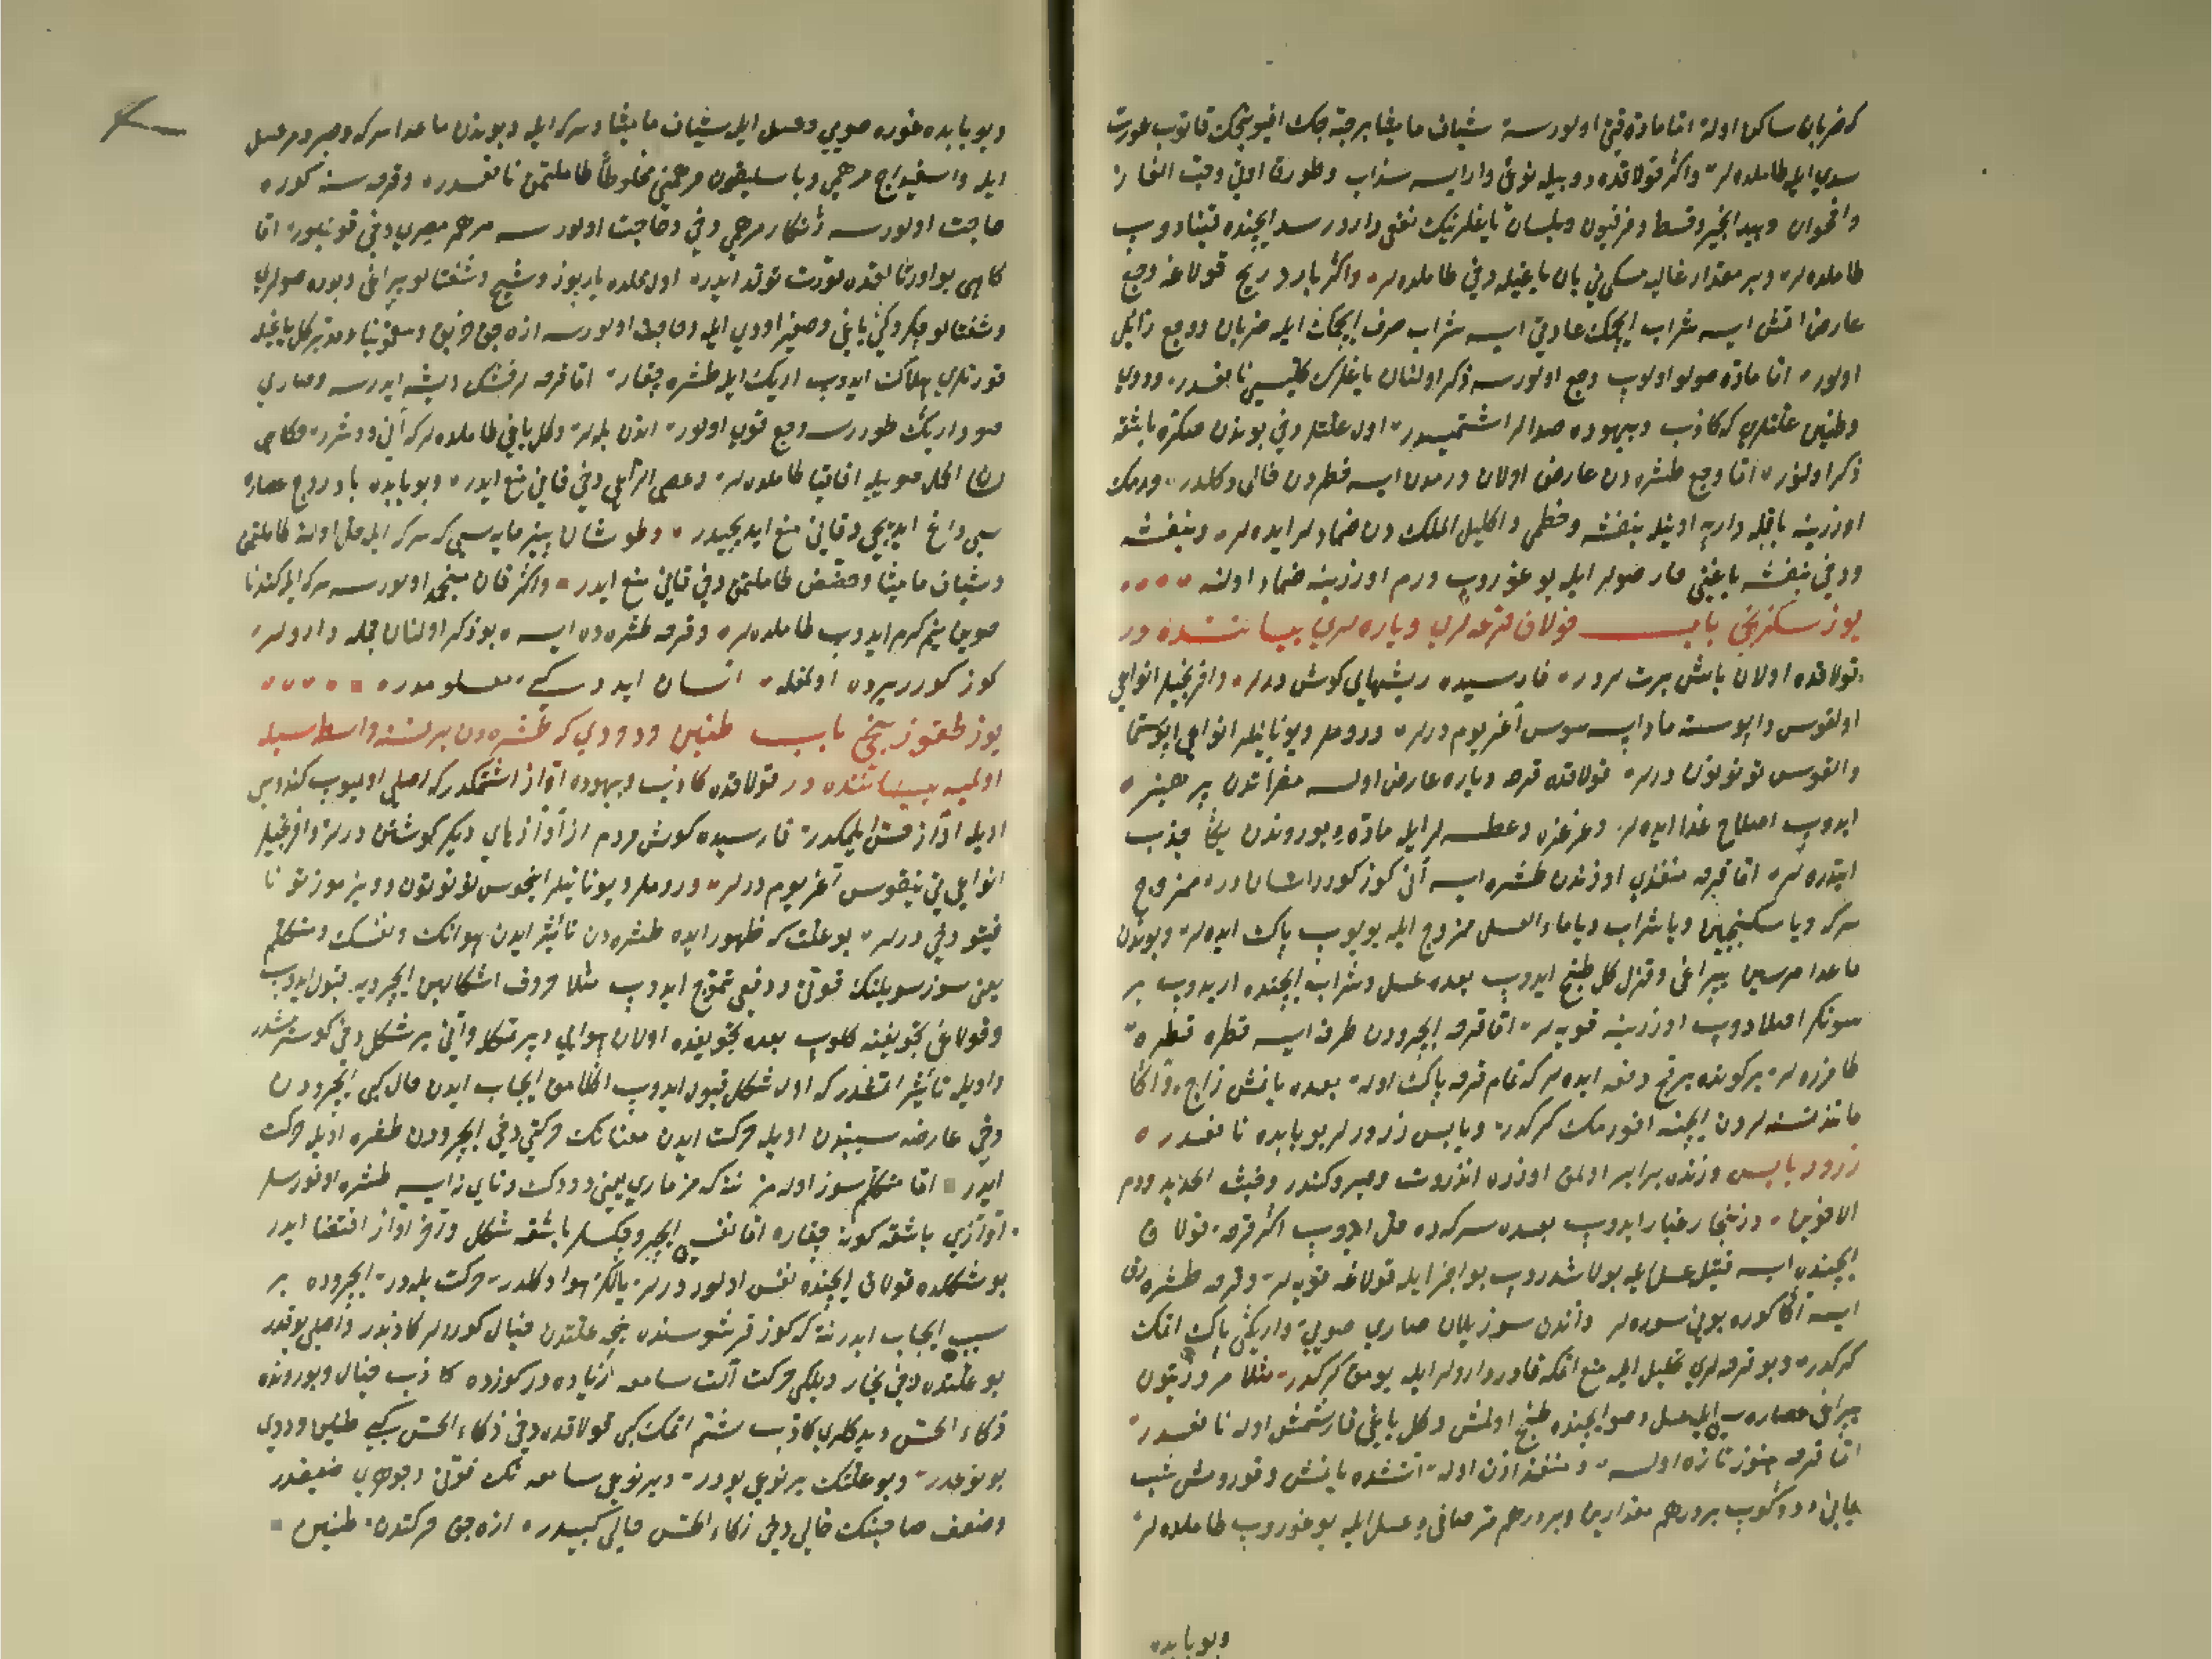 كه ضربان ساكن اولة اما مادّه قيح اولورسة شياف ماميثا برحبّه جك افيونجك قاتوب عورت
سدي ايله طامله دلر واكثر قولاقده دويله نوبتى وارايسه سذاب
واقحوان وبيد انجير وقسط وفرفيون وبلسان ياغلرينك نفعى واردر سد ايچنده قيناد وب
طامله دلر وبر مقدار غاليه مسكى بان ياغيله دخى طامله دلر واكثر بارد ريح قولاغه وجع
عارض اتمش ايسه شراب ايچمك عادتى ايسه شراب صرف ايچمك ايله ضربان ووجع زائل
اولور اما مادّه صولو اولوب وجع اولورسه ذكر اولنان ياغلرك كليسى نافعدر ودوي
وطنين علتلرى كه كاذب وبيهوده صدالر اشتمسيدر اول علتلر دخى بوندن صكره باشقه
ذكر اولنور اما وجع طشره دن عارض اولان ورمدن ايسه خطردن خالى دكلدر ورمك
اوزرينه باقله وارپه اونيله بنفشه وخطمى واكليل الملك دن ضماد لر ايده لر وبنفشه
ودخى بنفشه ياغنى حار صولر ايله يوغروب ورم اوزرينه ضماد اولنه
يوز سكزنجى باب قولاق قرحه لرى وياره لرى بيانننده در
قولاقده اولان باش برت لردر فارسيده ريشهاى كوش درلر وافرنجيلر انواعى
اولقوس واپوسته ماداپسه موس آغزيوم درلر وروملر ويونانيلر انواعى
والقوس تونوتون درلر قولاقده قرحه وياره عارض اولسه مضرّاتدن پرهيز
ايدوب اصلاح غذا ايده لر وغرغره وعطسه لر ايله مادّه وبوروندن يكا جذب
ايتدره لر اما قرحه منفذى اوزندن طشره ايسه آنى كوز كورر اساندر ممزوج
سركه ويا سكنجبين ويا شراب ويا ماء العسل ممزوج ايله يويوب پاك ايده لر وبوندن
ماعدا مرسين يپراغى وقزل كل طبخ ايدوب بعده عسل وشراب ايچنده اريدوب بر
سونكر اصلادوب اوزرينه قويه لر اما قرحه ايچرودن طرف ايسه قطره قطره
طامزره لر بركونده برقچ دفعه ايده لر كه تمام قرحه پاك اوله بعده يانمش زاج واكا
مانند نسنه لردن ايچنه افورمك كركدر ويابس زرور لر بوبابده نافعدر
زرور يابس وزنده برابر اولمق اوزره انزروت وصبر وكندر وخبث الحديد ودم
الاخوين وزنجار غبار ايدوب بعده سركه ده حل ايدوب اكثر قرحه قولاق
ايچنده ايسه فتيل عسل ايله بولاشدروب بواجزا ايله قولاغه قويه لر وقرحه طشره دن
ايسه آكا كوره بويى سوره لر واندن سوزيلان صارى صويى واريكى پاك اتمك
كركدر وبو قرحه لرى تحليل ايله منع اتمكه قادر دارولر ايله يومق كركدر مثلا مر وزيتون
يپراغى عصاره سى ايله عسل وصو ايچنده طبخ اولمش وكل ياغى قارشمش اوله نافعدر
اما قرحه هنوز تازه اولسه ومنفذ اوزن اوله اتشده يانمش وقورومش شب
يمانى دوكوب بردرهم مقدارين وبردرهم مر صافى وعسل ايله يوغوروب طامله دلر
وبوبابده
وبوبابده غوره صويى وعسل ايله شياف ماميثا وسركه ايله وبوندن ماعدا سركه وصبر ومر عسل
ايله واسفيداج مرهمى ويا سليقون مرهمنى مخلوطاً طاملتمق نافعدر وقرحه سنه كوره
حاجت اولورسه زنكار مرهمى دخى وحاجت اولورسه مرهم مصرى دخى قونيلور اما
كاهى بواورتا لقده قورت تولد ايدر اول محلده ياربوز وشيح وشفتالو يپراغى وبوره صولرى
وشفتالو چكردكى ياغى وصغير اودى ايله وحاجت اولورسه ازه جق خربق وسقمونيا ومدبر كل ياغيله
قورتلرى هلاك ايدوب اريك ايله طشره چقار اما قرحه لر فشكى ديشه ايدرسه وصارى
صو واريك طوررسه وجع قوى اولور اندن بله لر وكل ياغى طامله دلر كه آنى دوشرر وكاهى
قان انكل صويله اقاقيا طامله دلر وعصى الراعى دخى قانى منع ايدر وبوبابده بادروج عصاره
سى داغ ايديجى وقانى منع ايديجيدر وطوشان پينر مايه سى كه سركه ايله حل اولنه طاملتمق
وشياف ماميثا وحضض طاملتمق دخى قانى منع ايدر واكثر قان منجمد اولورسه سركه ايله كندنا
صويى نيم كرم ايدوب طامله دلر وقرحه طشره ده ايسه بوذكر اولنان جمله دارولر
كوز كورر يرده اولمغله آسان ايدوكى معلومدر
يوز طقوزنجى باب طنين ودودي كه طشره دن برنسنه واسطه سيله
اولميه بيساننده در قولاقده كاذب وبيهوده اواز اشتمكدر كه اصلى اوليوب كندوسى
اويله اواز حسّ ايلمكدر فارسيده كوش مردم از اوازهاى ديكر كوشائن درلر وافرنجيلر
انواعنى تينيتوس آغزيوم درلر وروملر ويونانيلر ايخوس تونوتون
فيتو دخى درلر بوعلت كه ظهور ايده طشره دن تأثير ايدن هوانك ونفسك ومتكلم
يعنى سوز سويلنك قوتى ودفعى تموّج ايدوب مثلا حروف اشكالين ايچرويه قبول ايدوب
وقولاغى تجويفنه كلوب بعده تجويفده اولان هوايى دپرتكله وآنى بر شكل دخى كوسترمشدر
واويله تأثير اتمشدر كه اول شكل قبول ايدوب اكلامق ايجاب ايدن حال كبى ايچرودن
دخى عارضه سببندن اويله حركت ايدن معنانك حركتى دخى ايچرودن طشره اويله حركت
ايدر اما متكلم سوز اوله مز نته كه مزمارى يعنى دودك وناى زايه طشره اوفورسلر
اوازى باشقه كونه چقار اما نفسى ايچرو چكسلر باشقه شكل وآخر اواز اقتضا ايدر
بو شكلده قولاق ايچنده نفس اولور درلر يالكز هوا دكلدر حركت بله در ايچروده بر
سبب ايجاب ايدر نته كه كوز قرشوسنده نيجه علتدن خيال كورولر كاذبدر واصلى يوقدر
بو علتده دخى بخار ويلكى حركت آلت سامعه زياده در كوزده كاذب خيال وبوروننده
ذكاء الحس ويه كلرى كاذب شم اتمك كبى قولاقده دخى ذكاء الحس كبى طنين ودوى
بونوعدر وبوعلتك برنوعى بودر وبرنوعى سامعه نك قوتى وجوهرى ضعيفدر
وضعف صاحبنك حالى دخى زكاء الحس حالى كبيدر ازه جق حركتدن طنين